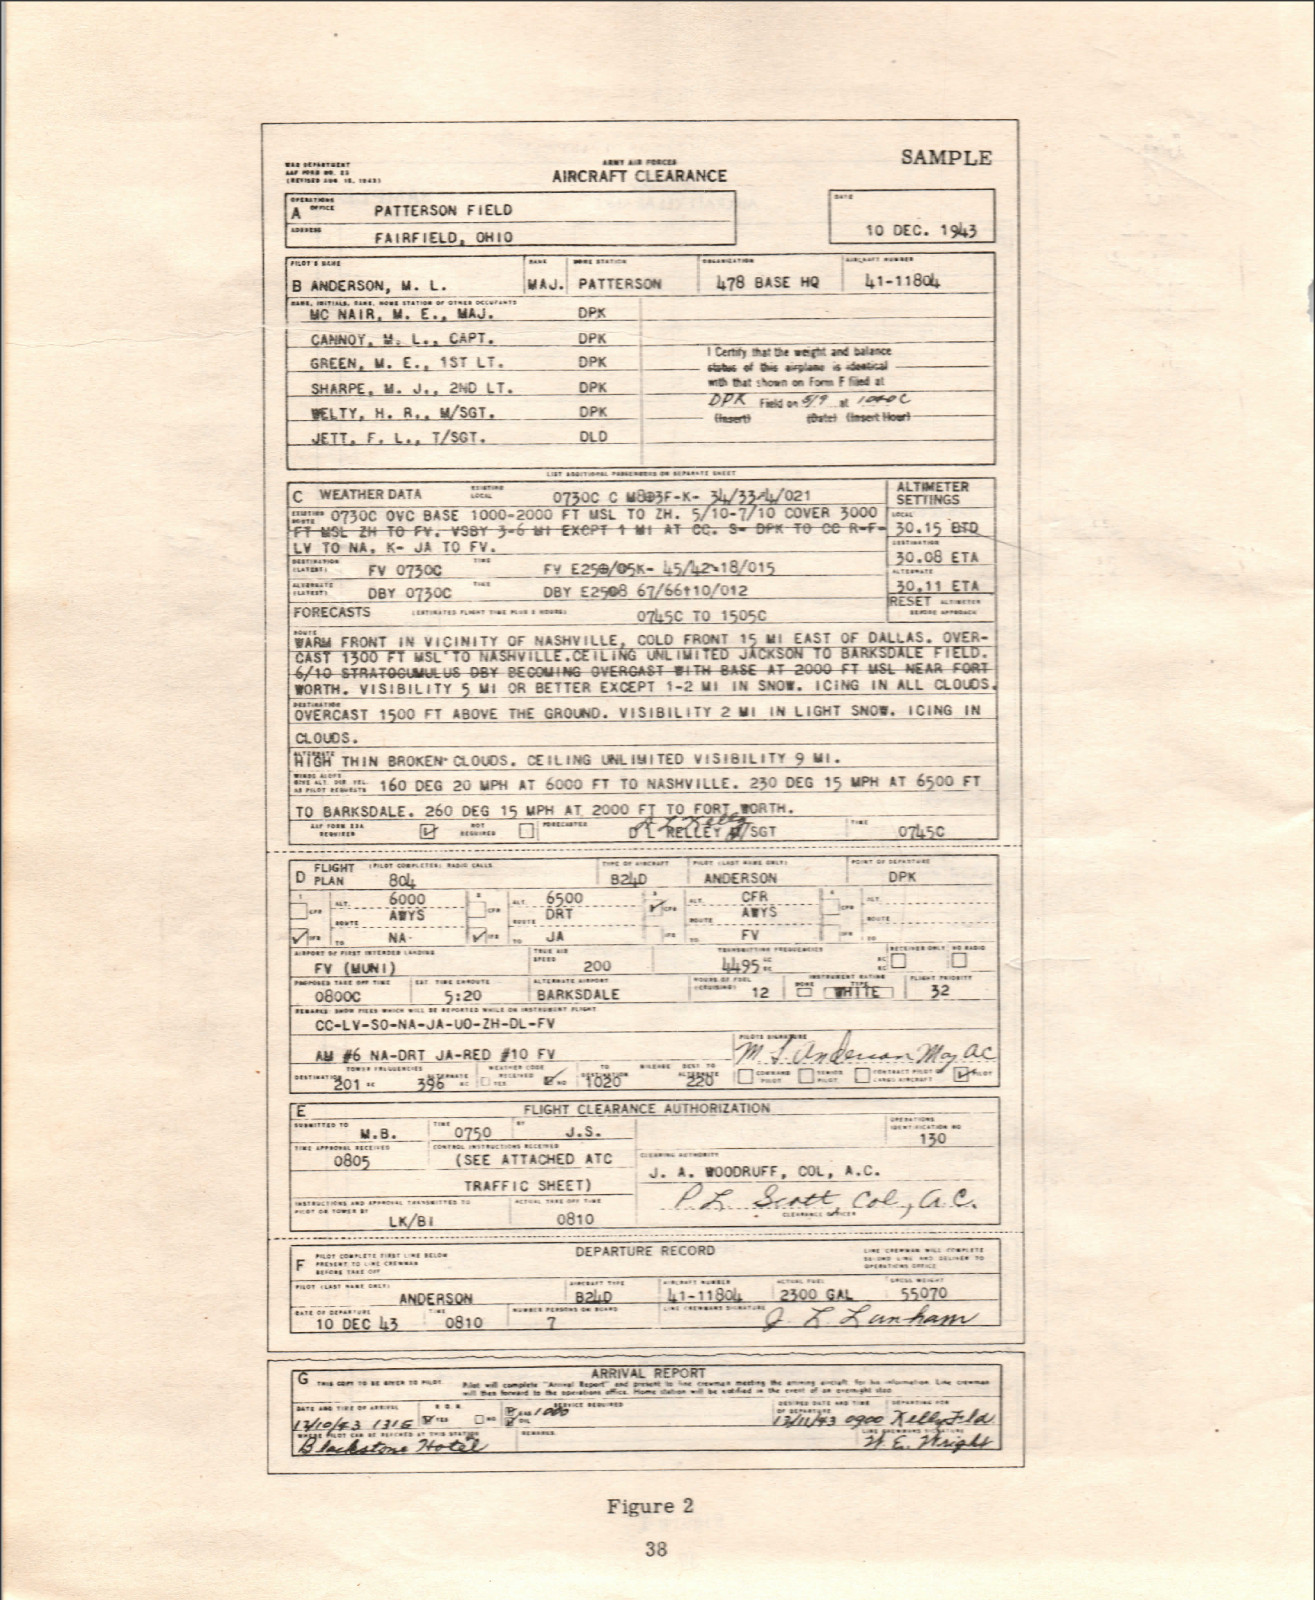 SAMPLE
WAR DEPARTMENT
AAF FORM NO. 23
(REVISED AUG 15, 1942)
ARMY AIR FORCES
AIRCRAFT CLEARANCE
OPERATIONS OFFICE
A PATTERSON FIELD
ADDRESS
FAIRFIELD, OHIO
DATE
10 DEC. 1943
PILOT'S NAME RANK HOME STATION ORGANIZATION AIRCRAFT NUMBER
B ANDERSON, M. L. MAJ. PATTERSON 478 BASE HQ 41-11804
NAME, INITIALS, RANK, HOME STATION OF OTHER OCCUPANTS
MC NAIR, M. E., MAJ. DPK
CANNOY, M. L., CAPT. DPK
GREEN, M. E., 1ST LT. DPK
SHARPE, M. J., 2ND LT. DPK
WELTY, H. R., M/SGT. DPK
JETT, F. L., T/SGT. DLD
I Certify that the weight and balance
status of this airplane is identical
with that shown on Form F filed at
DPK Field on 5/9 at
(Insert) (Date) (Insert Hour)
LIST ADDITIONAL PASSENGERS ON SEPARATE SHEET
C WEATHER DATA EXISTING LOCAL 0730C C
ALTIMETER SETTINGS
EXISTING ROUTE 0730C OVC BASE 1000-2000 FT MSL TO ZH. 5/10-7/10 COVER 3000
FT MSL ZH TO FV. VSBY 3-6 MI EXCPT 1 MI AT CC. S- DPK TO CC R-F-
LV TO NA. K- JA TO FV.
LOCAL
30.15 BTD
DESTINATION
30.08 ETA
DESTINATION (LATEST) FV 0730C TIME FV
ALTERNATE
30.11 ETA
ALTERNATE (LATEST) DBY 0730C TIME DBY
RESET ALTIMETER BEFORE APPROACH
FORECASTS (ESTIMATED FLIGHT TIME PLUS 2 HOURS) 0745C TO 1505C
ROUTE
WARM FRONT IN VICINITY OF NASHVILLE, COLD FRONT 15 MI EAST OF DALLAS. OVER-
CAST 1300 FT MSL TO NASHVILLE. CEILING UNLIMITED JACKSON TO BARKSDALE FIELD.
6/10 STRATOCUMULUS DBY BECOMING OVERCAST WITH BASE AT 2000 FT MSL NEAR FORT
WORTH. VISIBILITY 5 MI OR BETTER EXCEPT 1-2 MI IN SNOW. ICING IN ALL CLOUDS.
DESTINATION
OVERCAST 1500 FT ABOVE THE GROUND. VISIBILITY 2 MI IN LIGHT SNOW. ICING IN
CLOUDS.
ALTERNATE
HIGH THIN BROKEN CLOUDS. CEILING UNLIMITED VISIBILITY 9 MI.
WINDS ALOFT
GIVE ALT. DIR. VEL. AS PILOT REQUESTS 160 DEG 20 MPH AT 6000 FT TO NASHVILLE. 230 DEG 15 MPH AT 6500 FT
TO BARKSDALE. 260 DEG 15 MPH AT 2000 FT TO FORT WORTH.
AAF FORM 23A REQUIRED NOT REQUIRED FORECASTER D L KELLEY /SGT TIME 0745C
D FLIGHT PLAN (PILOT COMPLETES) RADIO CALLS TYPE OF AIRCRAFT PILOT (LAST NAME ONLY) POINT OF DEPARTURE
804 B24D ANDERSON DPK
1 CFR ALT. 6000 2 CFR ALT. 6500 3 CFR ALT. CFR 4 ALT.
ROUTE AWYS ROUTE DRT ROUTE AWYS ROUTE
IFR TO NA IFR TO JA IFR TO FV TO
AIRPORT OF FIRST INTENDED LANDING TRUE AIR SPEED TRANSMITTING FREQUENCIES RECEIVER ONLY NO RADIO
FV (MUNI) 200 4495 KC
PROPOSED TAKE OFF TIME EST TIME ENROUTE ALTERNATE AIRPORT HOURS OF FUEL (CRUISING) INSTRUMENT RATING FLIGHT PRIORITY
0800C 5:20 BARKSDALE 12 NONE TYPE WHITE 32
REMARKS: SHOW FIXES WHICH WILL BE REPORTED WHILE ON INSTRUMENT FLIGHT
CC-LV-SO-NA-JA-UO-ZH-DL-FV
AM #6 NA-DRT JA-RED #10 FV
PILOTS SIGNATURE
M L Anderson Maj AC
TOWER FREQUENCIES WEATHER CODE RECEIVED TO DESTINATION MILEAGE DEST TO ALTERNATE
DESTINATION 201 KC ALTERNATE 396 KC YES NO 1020 220 COMMAND PILOT SENIOR PILOT CONTRACT PILOT OR CARGO AIRCRAFT PILOT
E FLIGHT CLEARANCE AUTHORIZATION
SUBMITTED TO M.B. TIME 0750 BY J.S. OPERATIONS IDENTIFICATION NO 130
TIME APPROVAL RECEIVED CONTROL INSTRUCTIONS RECEIVED CLEARING AUTHORITY
0805 (SEE ATTACHED ATC
TRAFFIC SHEET)
J. A. WOODRUFF, COL, A.C.
INSTRUCTIONS AND APPROVAL TRANSMITTED TO PILOT OR TOWER BY ACTUAL TAKE OFF TIME
LK/BI 0810
P. L. Scott, Col, A.C.
CLEARANCE OFFICER
F PILOT COMPLETE FIRST LINE BELOW
PRESENT TO LINE CREWMAN
BEFORE TAKE OFF
DEPARTURE RECORD
LINE CREWMAN WILL COMPLETE
SECOND LINE AND DELIVER TO
OPERATIONS OFFICE
PILOT (LAST NAME ONLY) AIRCRAFT TYPE AIRCRAFT NUMBER ACTUAL FUEL GROSS WEIGHT
ANDERSON B24D 41-11804 2300 GAL 55070
DATE OF DEPARTURE TIME NUMBER PERSONS ON BOARD LINE CREWMANS SIGNATURE
10 DEC 43 0810 7 J L Lanham
G THIS COPY TO BE GIVEN TO PILOT.
ARRIVAL REPORT
Pilot will complete "Arrival Report" and present to line crewman meeting the arriving aircraft for his information. Line crewman
will then forward to the operations office. Home station will be notified in the event of an overnight stop.
DATE AND TIME OF ARRIVAL R.O.N. SERVICE REQUIRED DESIRED DATE AND TIME OF DEPARTURE DEPARTING FOR
12/10/43 1315 YES NO GAS 1000 OIL 12/11/43 0900 Kelly Fld
WHERE PILOT CAN BE REACHED AT THIS STATION REMARKS LINE CREWMANS SIGNATURE
Blackstone Hotel W. E. Wright
Figure 2
38